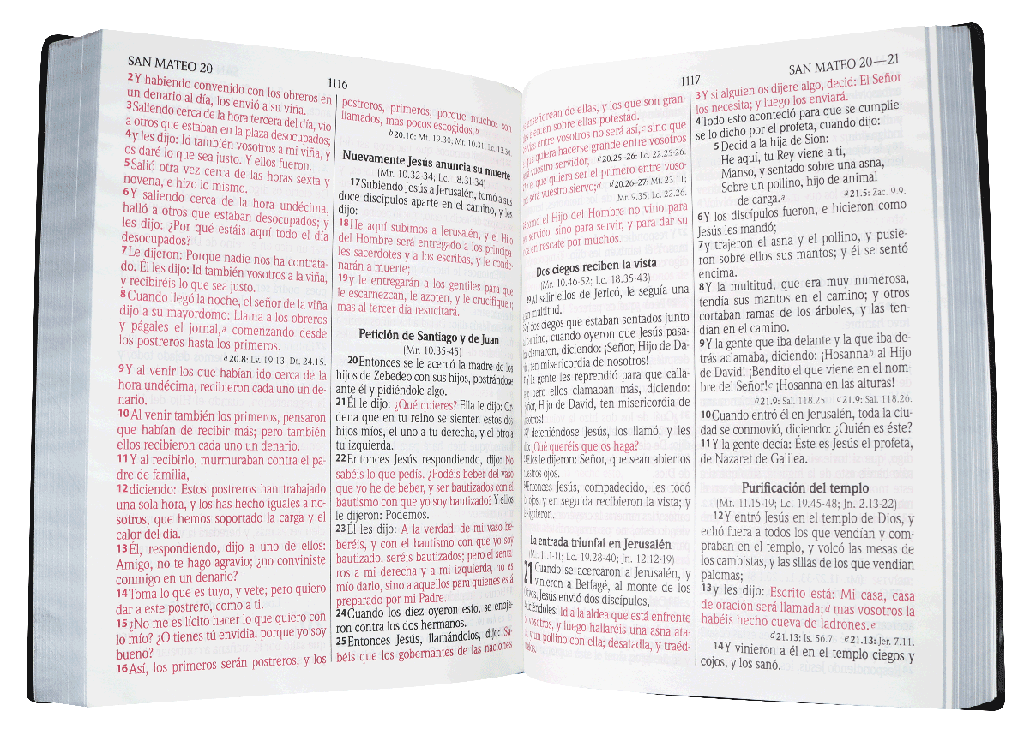 SAN MATEO 20
1116
2Y habiendo convenido con los obreros en
un denario al día, los envió a su viña.
3Saliendo cerca de la hora tercera del día, vio
a otros que estaban en la plaza desocupados;
4y les dijo: Id también vosotros a mi viña, y
os daré lo que sea justo. Y ellos fueron.
5Salió otra vez cerca de las horas sexta y
novena, e hizo lo mismo.
6Y saliendo cerca de la hora undécima,
halló a otros que estaban desocupados; y
les dijo: ¿Por qué estáis aquí todo el día
desocupados?
7Le dijeron: Porque nadie nos ha contrata-
do. Él les dijo: Id también vosotros a la viña,
y recibiréis lo que sea justo.
8Cuando llegó la noche, el señor de la viña
dijo a su mayordomo: Llama a los obreros
y págales el jornal,a comenzando desde
los postreros hasta los primeros.
a20.8: Lv. 19.13; Dt. 24.15.
9Y al venir los que habían ido cerca de la
hora undécima, recibieron cada uno un de-
nario.
10Al venir también los primeros, pensaron
que habían de recibir más; pero también
ellos recibieron cada uno un denario.
11Y al recibirlo, murmuraban contra el pa-
dre de familia,
12diciendo: Estos postreros han trabajado
una sola hora, y los has hecho iguales a no-
sotros, que hemos soportado la carga y el
calor del día.
13Él, respondiendo, dijo a uno de ellos:
Amigo, no te hago agravio; ¿no conviniste
conmigo en un denario?
14Toma lo que es tuyo, y vete; pero quiero
dar a este postrero, como a ti.
15¿No me es lícito hacer lo que quiero con
lo mío? ¿O tienes tú envidia, porque yo soy
bueno?
16Así, los primeros serán postreros, y los
postreros, primeros; porque muchos son
llamados, mas pocos escogidos.b
b20.16: Mt. 19.30; Mr. 10.31; Lc. 13.30.
Nuevamente Jesús anuncia su muerte
(Mr. 10.32-34; Lc. 18.31-34)
17Subiendo Jesús a Jerusalén, tomó a sus
doce discípulos aparte en el camino, y les
dijo:
18He aquí subimos a Jerusalén, y el Hijo
del Hombre será entregado a los principa-
les sacerdotes y a los escribas, y le conde-
narán a muerte;
19y le entregarán a los gentiles para que
le escarnezcan, le azoten, y le crucifiquen;
mas al tercer día resucitará.
Petición de Santiago y de Juan
(Mr. 10.35-45)
20Entonces se le acercó la madre de los
hijos de Zebedeo con sus hijos, postrándose
ante él y pidiéndole algo.
21Él le dijo: ¿Qué quieres? Ella le dijo: Or-
dena que en tu reino se sienten estos dos
hijos míos, el uno a tu derecha, y el otro a
tu izquierda.
22Entonces Jesús respondiendo, dijo: No
sabéis lo que pedís. ¿Podéis beber del vaso
que yo he de beber, y ser bautizados con el
bautismo con que yo soy bautizado? Y ellos
le dijeron: Podemos.
23Él les dijo: A la verdad, de mi vaso be-
beréis, y con el bautismo con que yo soy
bautizado, seréis bautizados; pero el senta-
ros a mi derecha y a mi izquierda, no es
mío darlo, sino a aquellos para quienes está
preparado por mi Padre.
24Cuando los diez oyeron esto, se enoja-
ron contra los dos hermanos.
25Entonces Jesús, llamándolos, dijo: Sa-
béis que los gobernantes de las naciones
1117
SAN MATEO 20—21
de ellas, y los que son gran-
sobre ellas potestad.
entre vosotros no será así,c sino que
quiera hacerse grande entre vosotros
vuestro servidor, c20.25-26: Lc. 22.25-26.
que quiera ser el primero entre voso-
vuestro siervo;d d20.26-27: Mt. 23.11;
Mr. 9.35; Lc. 22.26.
el Hijo del Hombre no vino para
servido, sino para servir, y para dar su
en rescate por muchos.
Dos ciegos reciben la vista
(Mr. 10.46-52; Lc. 18.35-43)
Al salir ellos de Jericó, le seguía una
multitud.
dos ciegos que estaban sentados junto
camino, cuando oyeron que Jesús pasa-
clamaron, diciendo: ¡Señor, Hijo de Da-
ten misericordia de nosotros!
la gente les reprendió para que calla-
pero ellos clamaban más, diciendo:
Hijo de David, ten misericordia de
deteniéndose Jesús, los llamó, y les
¿Qué queréis que os haga?
le dijeron: Señor, que sean abiertos
ojos.
Entonces Jesús, compadecido, les tocó
ojos, y en seguida recibieron la vista; y
siguieron.
La entrada triunfal en Jerusalén
(Mr. 11.1-11; Lc. 19.28-40; Jn. 12.12-19)
21 Cuando se acercaron a Jerusalén, y
vinieron a Betfagé, al monte de los
Jesús envió dos discípulos,
Id a la aldea que está enfrente
vosotros, y luego hallaréis una asna ata-
un pollino con ella; desatadla, y traéd-
3Y si alguien os dijere algo, decid: El Señor
los necesita; y luego los enviará.
4Todo esto aconteció para que se cumpliese
se lo dicho por el profeta, cuando dijo:
5Decid a la hija de Sion:
He aquí, tu Rey viene a ti,
Manso, y sentado sobre una asna,
Sobre un pollino, hijo de animal
de carga.a
a21.5: Zac. 9.9.
6Y los discípulos fueron, e hicieron como
Jesús les mandó;
7y trajeron el asna y el pollino, y pusie-
ron sobre ellos sus mantos; y él se sentó
encima.
8Y la multitud, que era muy numerosa,
tendía sus mantos en el camino; y otros
cortaban ramas de los árboles, y las ten-
dían en el camino.
9Y la gente que iba delante y la que iba de-
trás aclamaba, diciendo: ¡Hosannab al Hijo
de David! ¡Bendito el que viene en el nom-
bre del Señor!c ¡Hosanna en las alturas!
b21.9: Sal. 118.25. c21.9: Sal. 118.26.
10Cuando entró él en Jerusalén, toda la ciu-
dad se conmovió, diciendo: ¿Quién es éste?
11Y la gente decía: Éste es Jesús el profeta,
de Nazaret de Galilea.
Purificación del templo
(Mr. 11.15-19; Lc. 19.45-48; Jn. 2.13-22)
12Y entró Jesús en el templo de Dios, y
echó fuera a todos los que vendían y com-
praban en el templo, y volcó las mesas de
los cambistas, y las sillas de los que vendían
palomas;
13y les dijo: Escrito está: Mi casa, casa
de oración será llamada;d mas vosotros la
habéis hecho cueva de ladrones.e
d21.13: Is. 56.7. e21.13: Jer. 7.11.
14Y vinieron a él en el templo ciegos y
cojos, y los sanó.